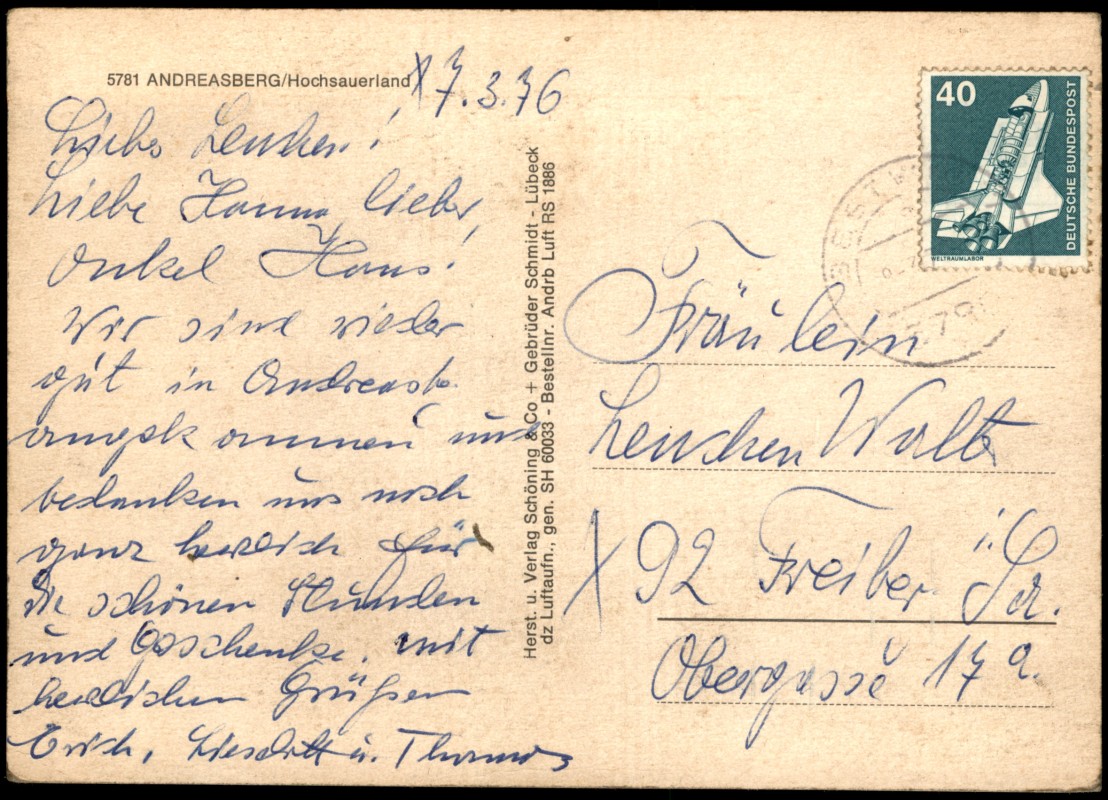 5781 ANDREASBERG/Hochsauerland
7.3.76
Liebes Lenchen!
Liebe Hanna lieber
Onkel Hans!
Wir sind wieder
gut in Andreasb.
angekommen und
bedanken uns noch
ganz herzlich für
die schönen Stunden
und Geschenke. mit
herzlichen Grüßen
Erich, Liesdott u. Thomas
Herst. u. Verlag Schöning & Co + Gebrüder Schmidt - Lübeck
dz Luftaufn., gen. SH 60033 - Bestellnr. Andrb Luft RS 1886
40
DEUTSCHE BUNDESPOST
WELTRAUMLABOR
BESTWI
579
Fräulein
Lenchen
X 92 Freiber i. Sa.
Obergasse 17 a.